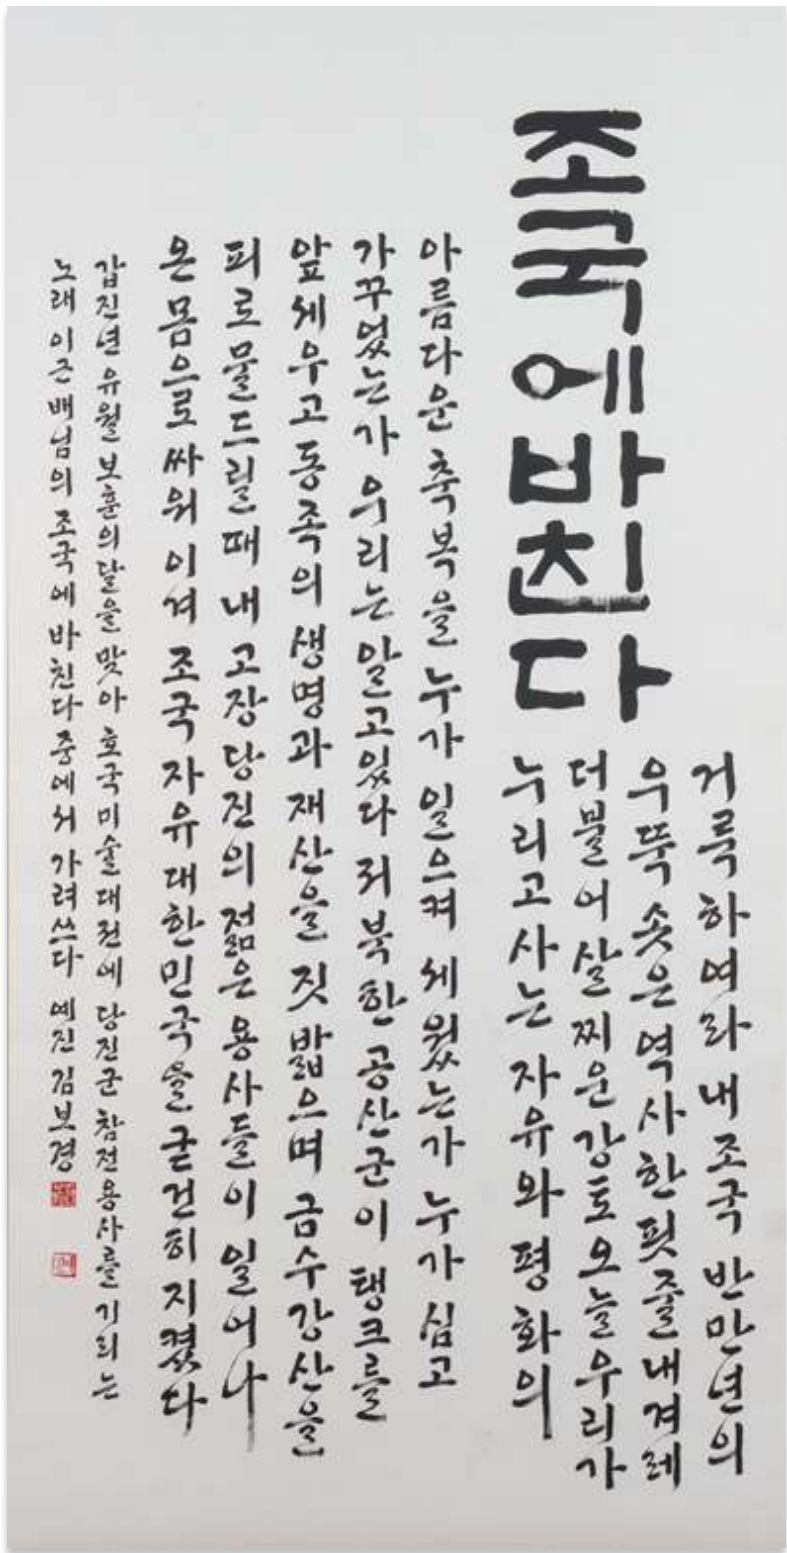 조국에바친다
거룩하여라 내 조국 반만년의
우뚝 솟은 역사 한 핏줄 내 겨레
더불어 살찌운 강토 오늘 우리가
누리고 사는 자유와 평화의
아름다운 축복을 누가 일으켜 세웠는가 누가 심고
가꾸었는가 우리는 알고있다 저 북한 공산군이 탱크를
앞세우고 동족의 생명과 재산을 짓밟으며 금수강산을
피로 물드릴 때 내 고장 당진의 젊은 용사들이 일어나
온 몸으로 싸워 이겨 조국 자유 대한민국을 굳건히 지켰다
갑진년 유월 보훈의달을 맞아 호국미술대전에 당진군 참전용사를 기리는
노래 이근배님의 조국에 바친다 중에서 가려쓰다 예진 김보경